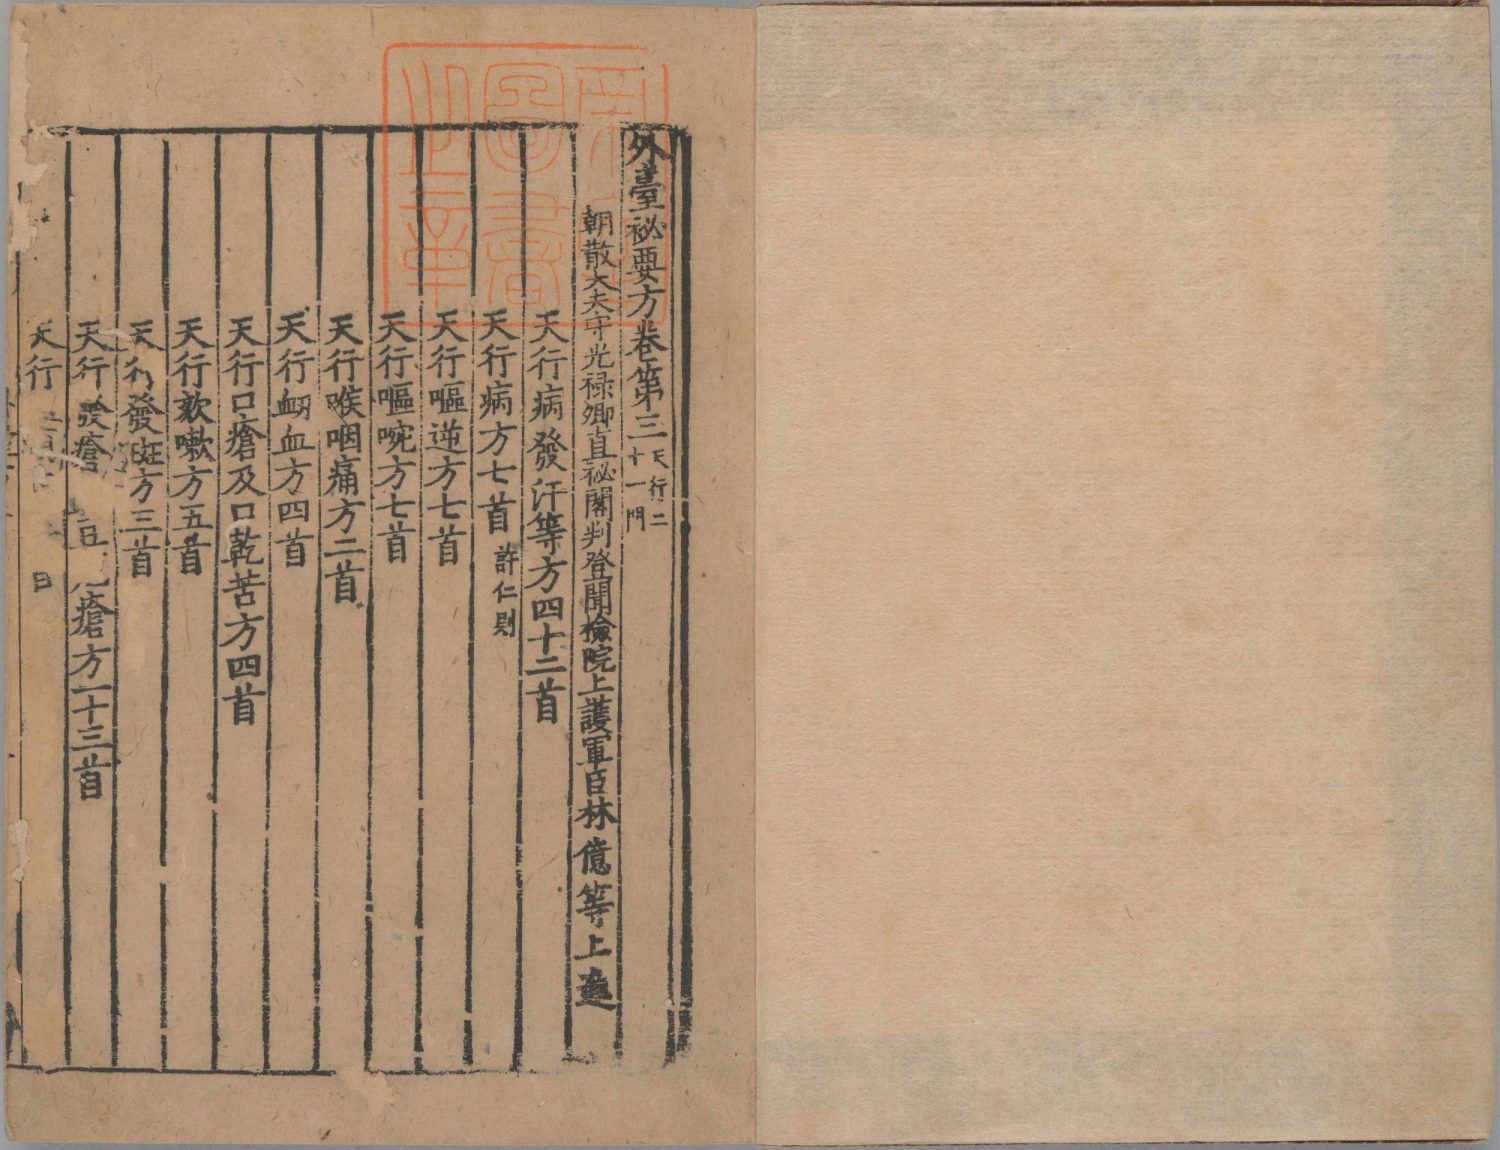 外臺祕要方卷第三 天行二十一門
朝散大夫守光禄卿直祕閣判登聞檢院上護軍臣林億等上進
天行病發汗等方四十二首
天行病方七首 許仁則
天行嘔逆方七首
天行嘔啘方七首
天行喉咽痛方二首
天行衂血方四首
天行口瘡及口乾苦方四首
天行欬嗽方五首
天行發斑方三首
天行發瘡豆瘡方一十三首
天行
圖書
之章